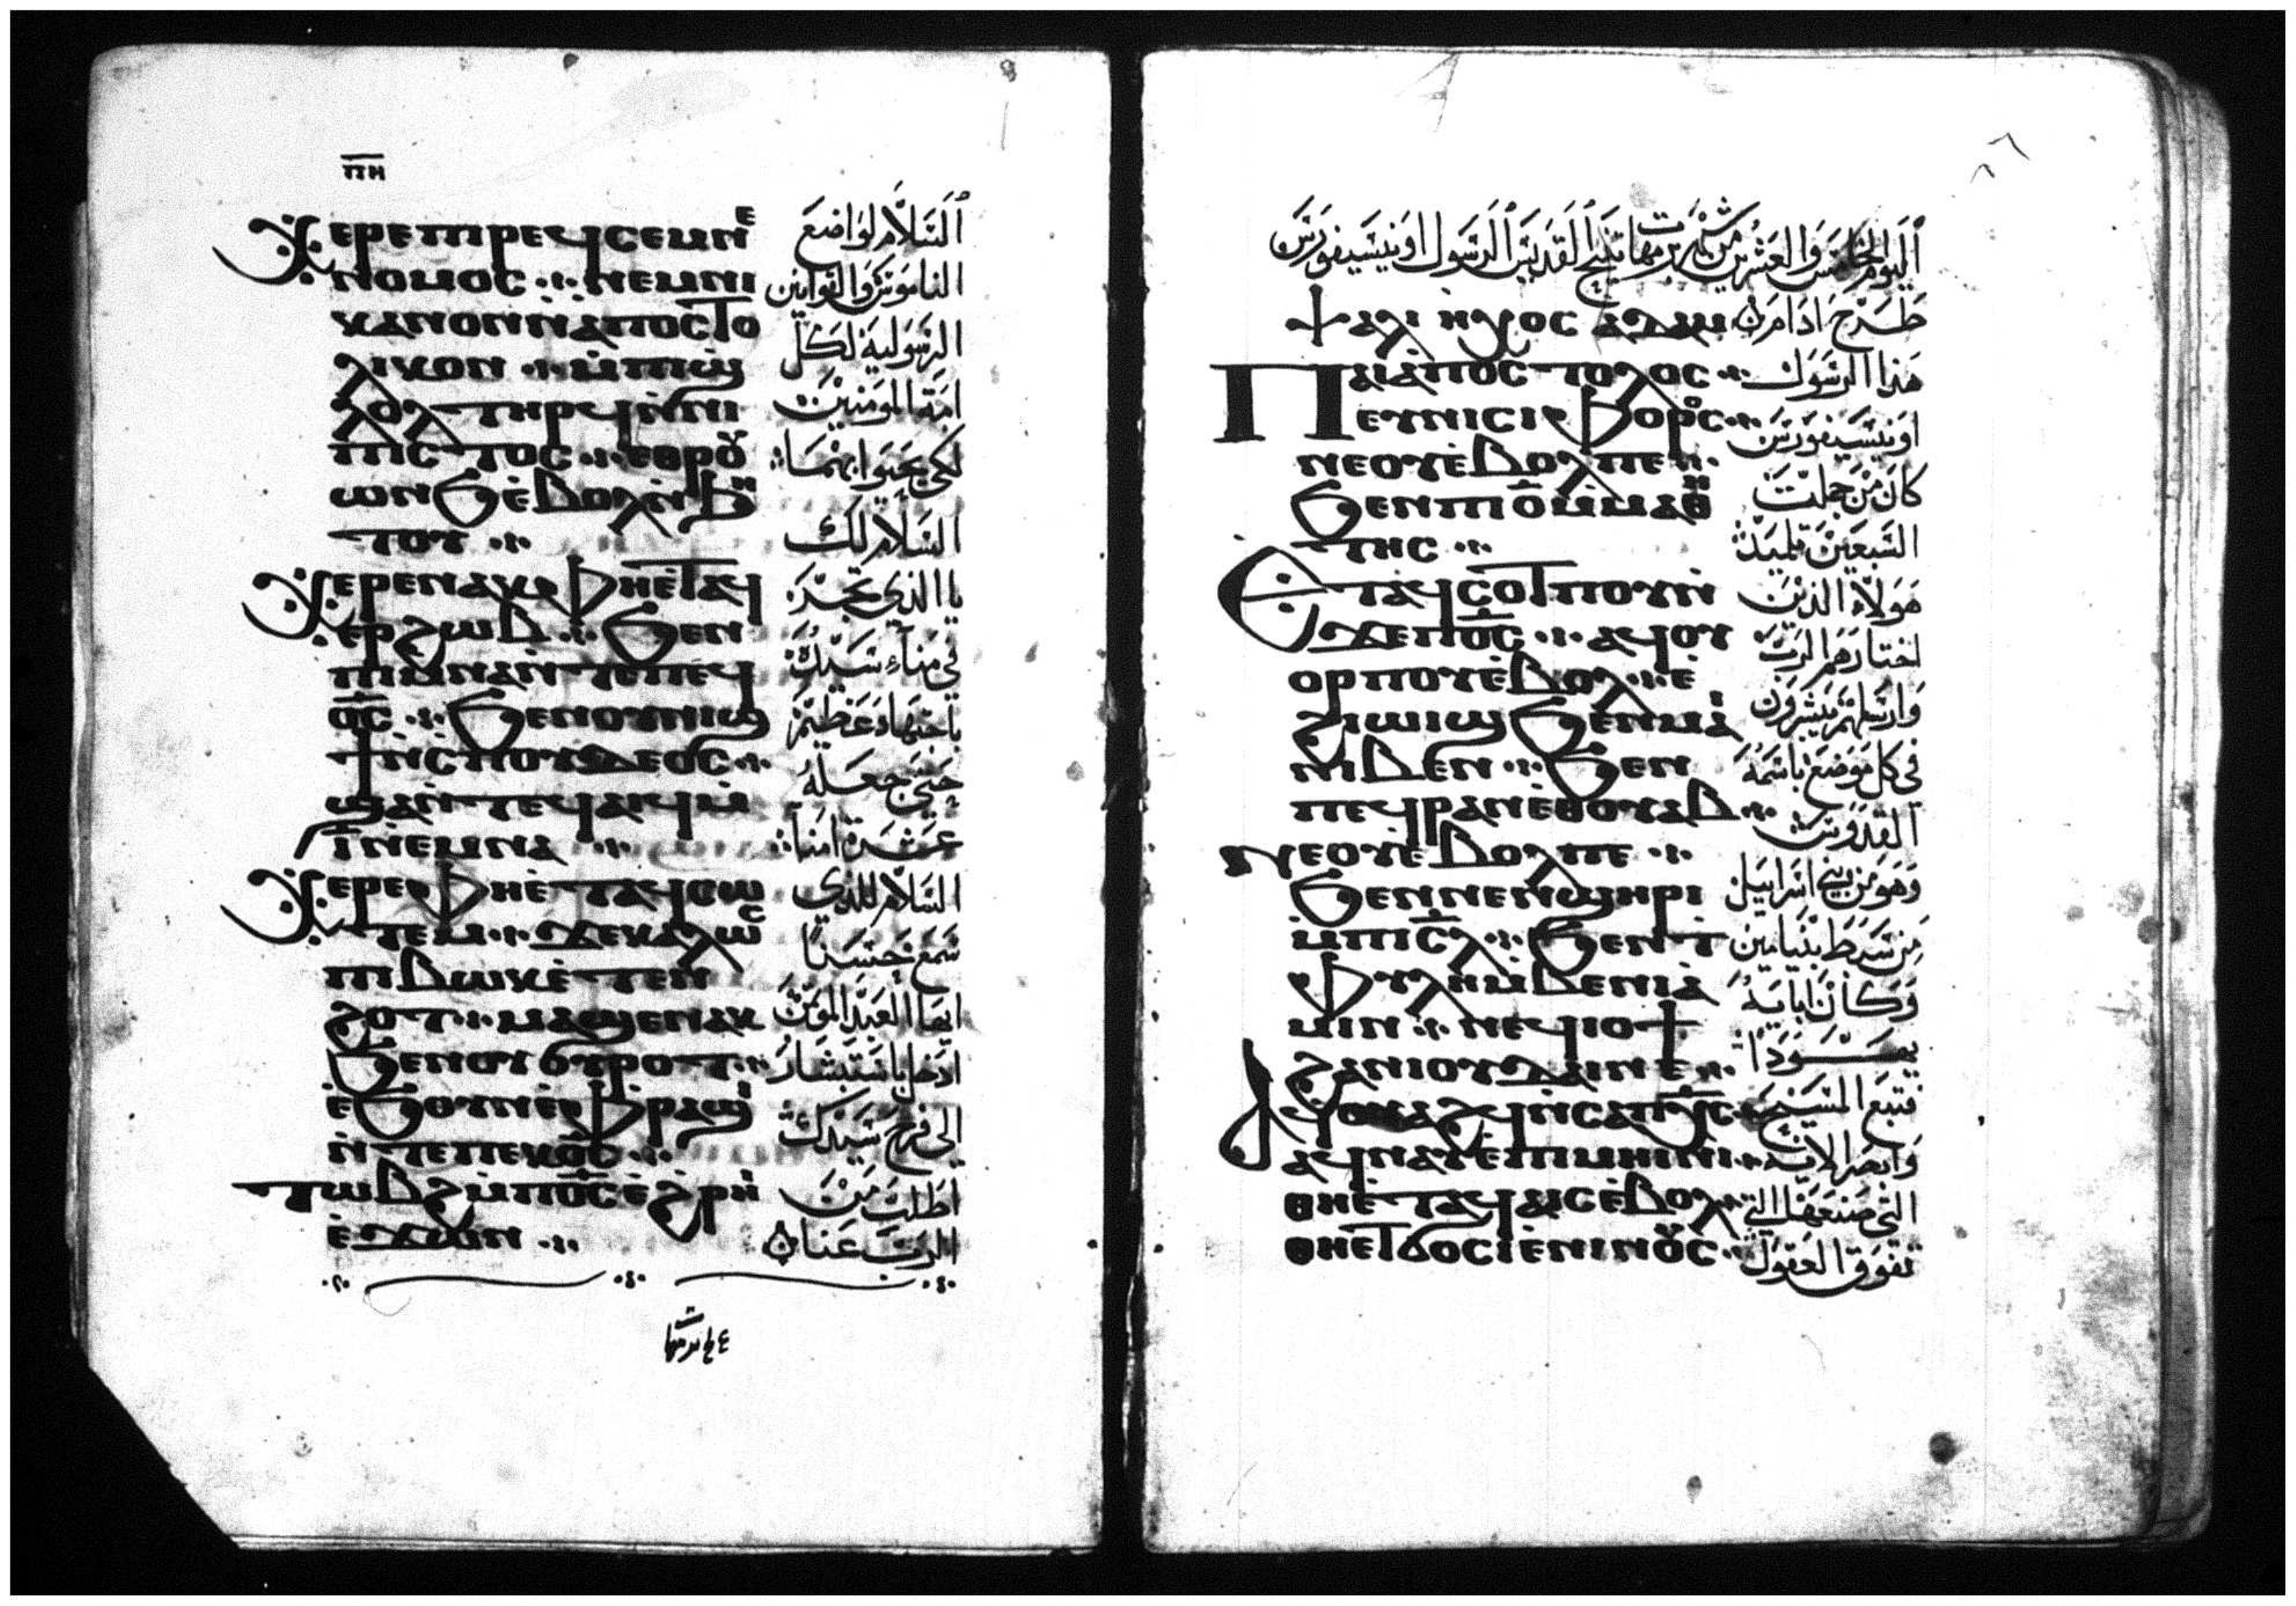 ⲡⲏ
ⲭⲉⲣⲉ ⲡⲓⲣⲉϥⲥⲉⲙⲛⲉ
ⲛⲟⲙⲟⲥ ⁘ ⲛⲉⲙⲛⲓ
ⲕⲁⲛⲟⲛ ⲛ̀ⲁⲡⲟⲥⲧⲟ
ⲗⲓⲕⲟⲛ ⁘ ⲙ̀ⲡⲓϣ
ⲗⲟⲗ ⲧⲏⲣϥ ⲛ̀ⲛⲓ
ⲡⲓⲥⲧⲟⲥ ⁘ ⲉⲑⲣⲟⲩ
ⲱⲛϧ ⲉ̀ⲃⲟⲗ ⲛ̀ϧⲏ
ⲧⲟⲩ ⁘
ⲭⲉⲣⲉ ⲛⲁⲕ ⲫⲏⲉ̀ⲧⲁϥ
ⲉⲣϩⲱⲃ ⁘ ϧⲉⲛ
ⲡⲓⲙⲛⲁ ⲛ̀ⲧⲉⲡⲉϥ
ⲟ̅ⲥ̅ ⁘ ϧⲉⲛⲟⲩⲛⲓϣ
ϯ ⲛ̀ⲥⲡⲟⲩⲇⲉⲟⲥ ⁘
ϣⲁⲛ̀ⲧⲉϥⲁⲓϥ ⲙ̀
ⲓ̅ ⲛ̀ⲉⲙⲛⲁ ⁘
ⲭⲉⲣⲉ ⲫⲏⲉ̀ⲧⲁϥⲥⲱ
ⲧⲉⲙ ⁘ ϫⲉⲕⲁⲗⲱⲥ
ⲡⲓⲃⲱⲕ ⲉ̀ⲧⲉⲛ
ϩⲟⲧ ⁘ ⲙⲁϣⲉⲛⲁⲕ
ϧⲉⲛⲟⲩ ϭⲩⲣⲟⲧ ⁘
ⲉ̀ϧⲟⲩⲛ ⲉ̀ⲫⲣⲁϣⲓ
ⲛ̀ⲧⲉⲡⲉⲕⲟ̅ⲥ̅ ⁘
ⲧⲱⲃϩ ⲙ̀ⲡⲟ̅ⲥ̅ ⲉ̀ϩⲣⲏⲓ
ⲉ̀ϫⲱⲛ ⁘
اَلسَلاَمُ لوَاضعَ
النامَوسَ وَالقوانين
الرسَوليَة لَكلّ
امَة المومَنيْنَ
لكي يَحيَوا بهْمَا
السَلاَمُ لَكَ
يا الذي تجَرّ
في مَناء سَيّدَه
باجتهَادَ عَظيَمْ
حَتيَ جعَلهُ
عَشرَة امَنا
السَلاَمُ للذي
سَمَع حَسَنًا
ايهَا العَبْد المؤتَمَن
ادخل باستَبشَار
الى فرَح سَيدك
اطَلبَ مَنْ
الرَبَ عَنا
اَليَوم الخامَسَ وَالعشْرين من شهر برمهات نَيَح القدَيسَ الرَسَول اونيسيفورسَ
ⲯⲁⲗⲓ ⲏⲭⲟⲥ ⲁⲇⲁⲙ
ⲡⲁⲓⲁ̀ⲡⲟⲥⲧⲟⲗⲟⲥ ⁘
ⲉⲩⲛⲓⲥⲓⲫⲟⲣⲟⲥ ⁘
ⲛⲉⲟⲩⲉ̀ⲃⲟⲗⲡⲉ ⁘
ϧⲉⲛⲡⲓⲟ̅ ⲙ̀ⲙⲁⲑⲏ
ⲧⲏⲥ ⁘
ⲉⲧⲁϥⲥⲟⲧⲡⲟⲩ ⲛ̀
ϫⲉⲡⲟ̅ⲥ̅ ⁘ ⲁϥⲟⲩ
ⲟⲣⲡⲟⲩ ⲉ̀ⲃⲟⲗ ⁘ ⲉ̀
ϩⲓⲱⲓϣ ϧⲉⲛⲙⲁⲓ
ⲛⲓⲃⲉⲛ ⁘ ϧⲉⲛ
ⲡⲉϥⲣⲁⲛ ⲉⲑⲟⲩⲁⲃ ⁘
ⲛⲉⲟⲩⲉ̀ⲃⲟⲗⲡⲉ ⁘
ϧⲉⲛⲛⲉⲛϣⲏⲣⲓ
ⲙ̀ⲡⲓⲥ̅ⲗ̅ ⁘ ϧⲉⲛⲧ
ⲫⲩⲗⲏ ⲙ̀ⲃⲉⲛⲓⲁ
ⲙⲓⲛ ⁘ ⲛⲉϥⲓⲟϯ
ϩⲁⲛⲓⲟⲩⲇⲁⲓ ⲛⲉ ⁘
ⲁϥⲟⲩⲁϩϥ ⲛ̀ⲥⲁⲡⲭ̅ⲥ̅ ⁘
ⲁϥⲛⲁⲩ ⲉ̀ⲡⲓⲙⲏⲓⲛⲓ ⁘
ⲑⲏⲉ̀ⲧⲁϥⲁⲓⲥ ⲉ̀ⲃⲟⲗ
ⲑⲏⲉⲧϭⲟⲥⲓ ⲉⲛⲓⲛⲟⲩⲥ ⁘
طَرَح ادَامَ
هَذا الرَسَول
اونيَسَيفورَسَ
كَانَ مَنْ جملَتْ
السَبعَيْن تلميذ
هَولاَء الذينَ
اختارَهَم الرَبْ
وَارسَلهَم يبَشرَون
في كل مَوَضع باسَمَهُ
القَدَوسَ
وَهَو مَنْ بني اسَراييل
مِنْ سَبَط بنَيامين
وَكاَنْ ابايَهُ
يهَــوَدَا
فتبَع المَسَيَح
وَابصَر الايَه
التي صَنعَهَا التي
تفوَق العَقوَل